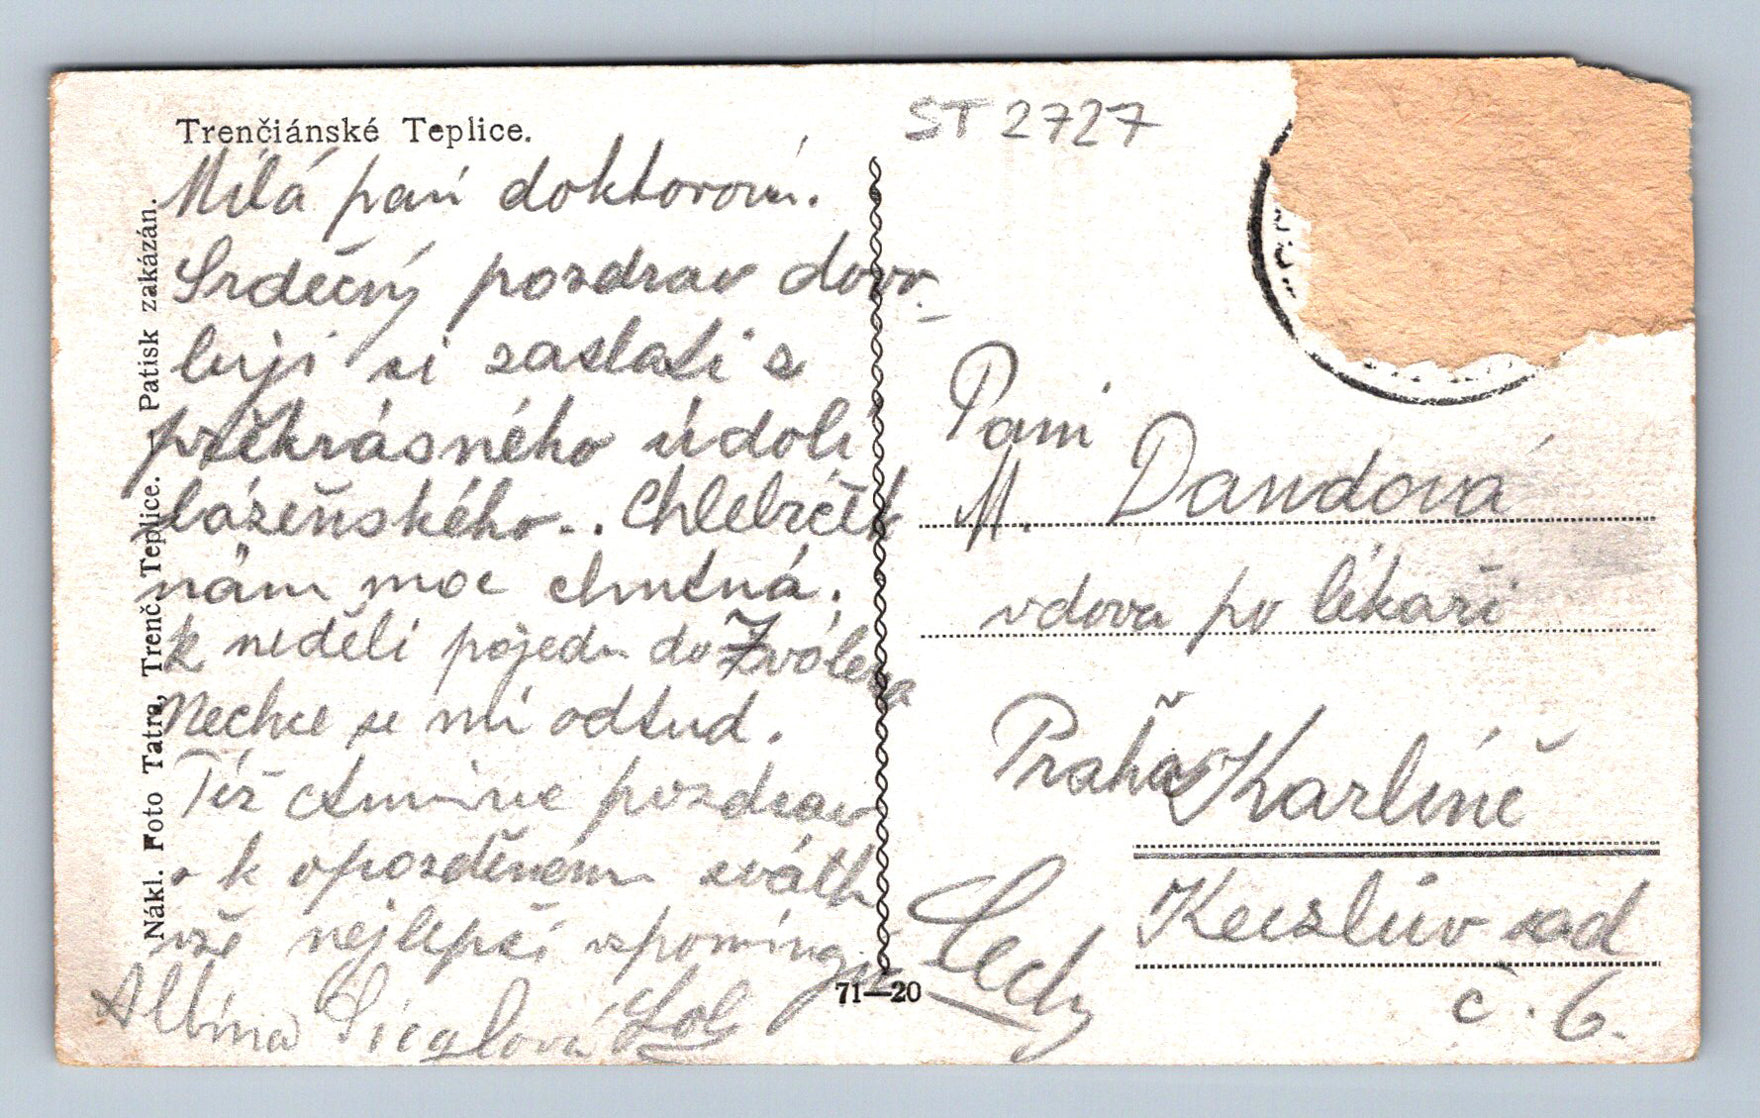 Trenčiánské Teplice.
ST 2727
Milá paní doktorová.
Srdečný pozdrav dovo-
luji si zaslati z
překrásného údolí
lázeňského.. Chlebíček
nám moc chutná.
k neděli pojedu do Zvolena
Nechce se mi odtud.
Též pozdrav
a k opozděném svátku
vše nejlepší vzpomíng
Albína
Nákl. Foto Tatra, Trenč. Teplice. Patisk zakázán.
71—20
Paní
M. Dandová
vdova po lékaři
Praha Karlíně
sad
č. 6.